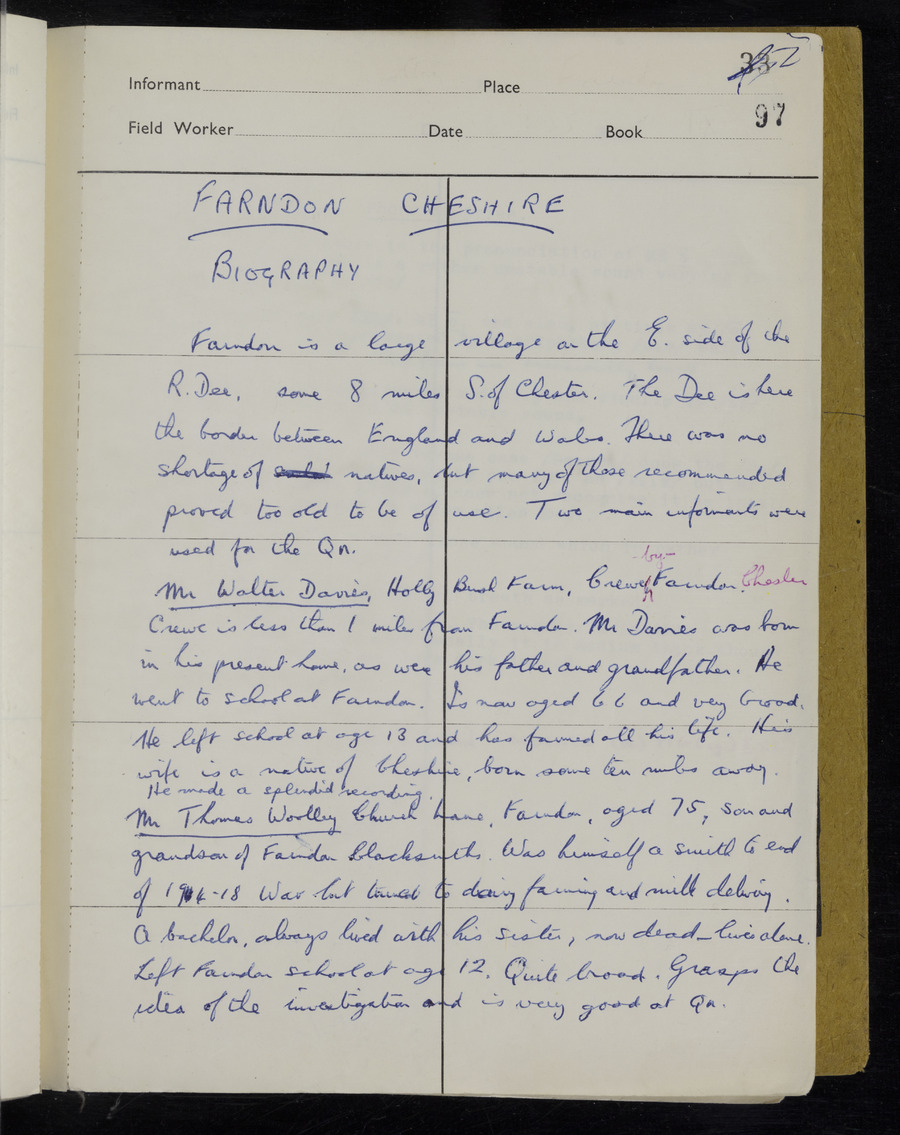 33
52
Informant Place
97
Field Worker Date Book
FARNDON CHESHIRE
BIOGRAPHY
Farndon is a large village on the E. side of the
R. Dee, some 8 miles S. of Chester. The Dee is here
the border between England and Wales. There was no
shortage of natives, but many of those recommended
proved too old to be of use. Two main informants were
used for the Qn.
by
Mr Walter Davies, Holly Bush Farm, Crewe Farndon. Chester
Crewe is less than 1 mile from Farndon. Mr Davies was born
in his present home, as were his father and grandfather. He
went to school at Farndon. Is now aged 66 and very broad.
He left school at age 13 and has farmed all his life. His
wife is a native of Cheshire, born some ten miles away.
He made a splendid recording.
Mr Thomas Woolley Church Lane, Farndon, aged 75, son and
grandson of Farndon blacksmiths. Was himself a smith to end
of 1914-18 War but turned to dairy farming and milk delivery.
A bachelor, always lived with his sister, now dead - lives alone.
Left Farndon school at age 12. Quite broad. Grasps the
idea of the investigation and is very good at Qn.